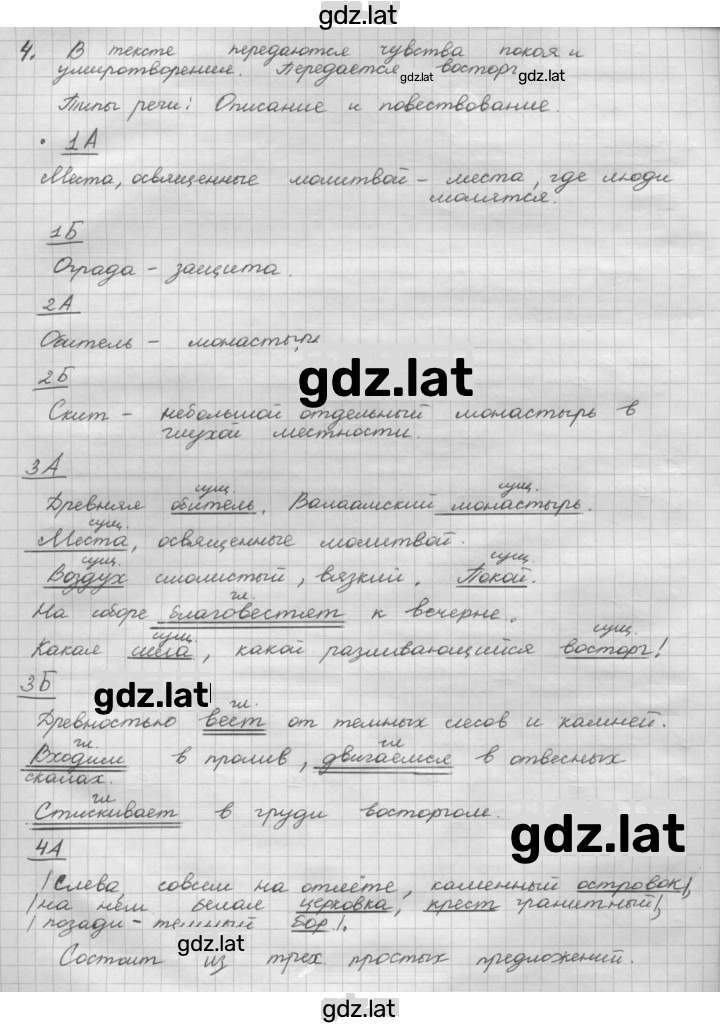 gdz.lat
4. В тексте передаются чувства покоя и
умиротворения. Передается восторг.
gdz.lat gdz.lat
Типы речи: Описание и повествование.
• 1А
Места, освященные молитвой – места, где люди
молятся.
1Б
Ограда – защита.
2А
Обитель – монастырь
gdz.lat
2Б
Скит – небольшой отдельный монастырь в
глухой местности.
3А
сущ. сущ.
Древняя обитель. Валаамский монастырь.
сущ.
Места, освященные молитвой.
сущ. сущ.
Воздух смолистый, вязкий. Покой.
гл.
На соборе благовестят к вечерне.
сущ. сущ.
Какая сила, какой разливающийся восторг!
3Б
gdz.lat
гл.
Древностью веет от темных лесов и камней.
гл. гл
Входим в пролив, двигаемся в отвесных
скалах.
гл
Стискивает в груди восторгом.
gdz.lat
4А
|Слева, совсем на отлёте, каменный островок|,
|на нём белая церковка, крест гранитный|,
|позади – темный бор|.
gdz.lat
Состоит из трех простых предложений.
gdz.lat